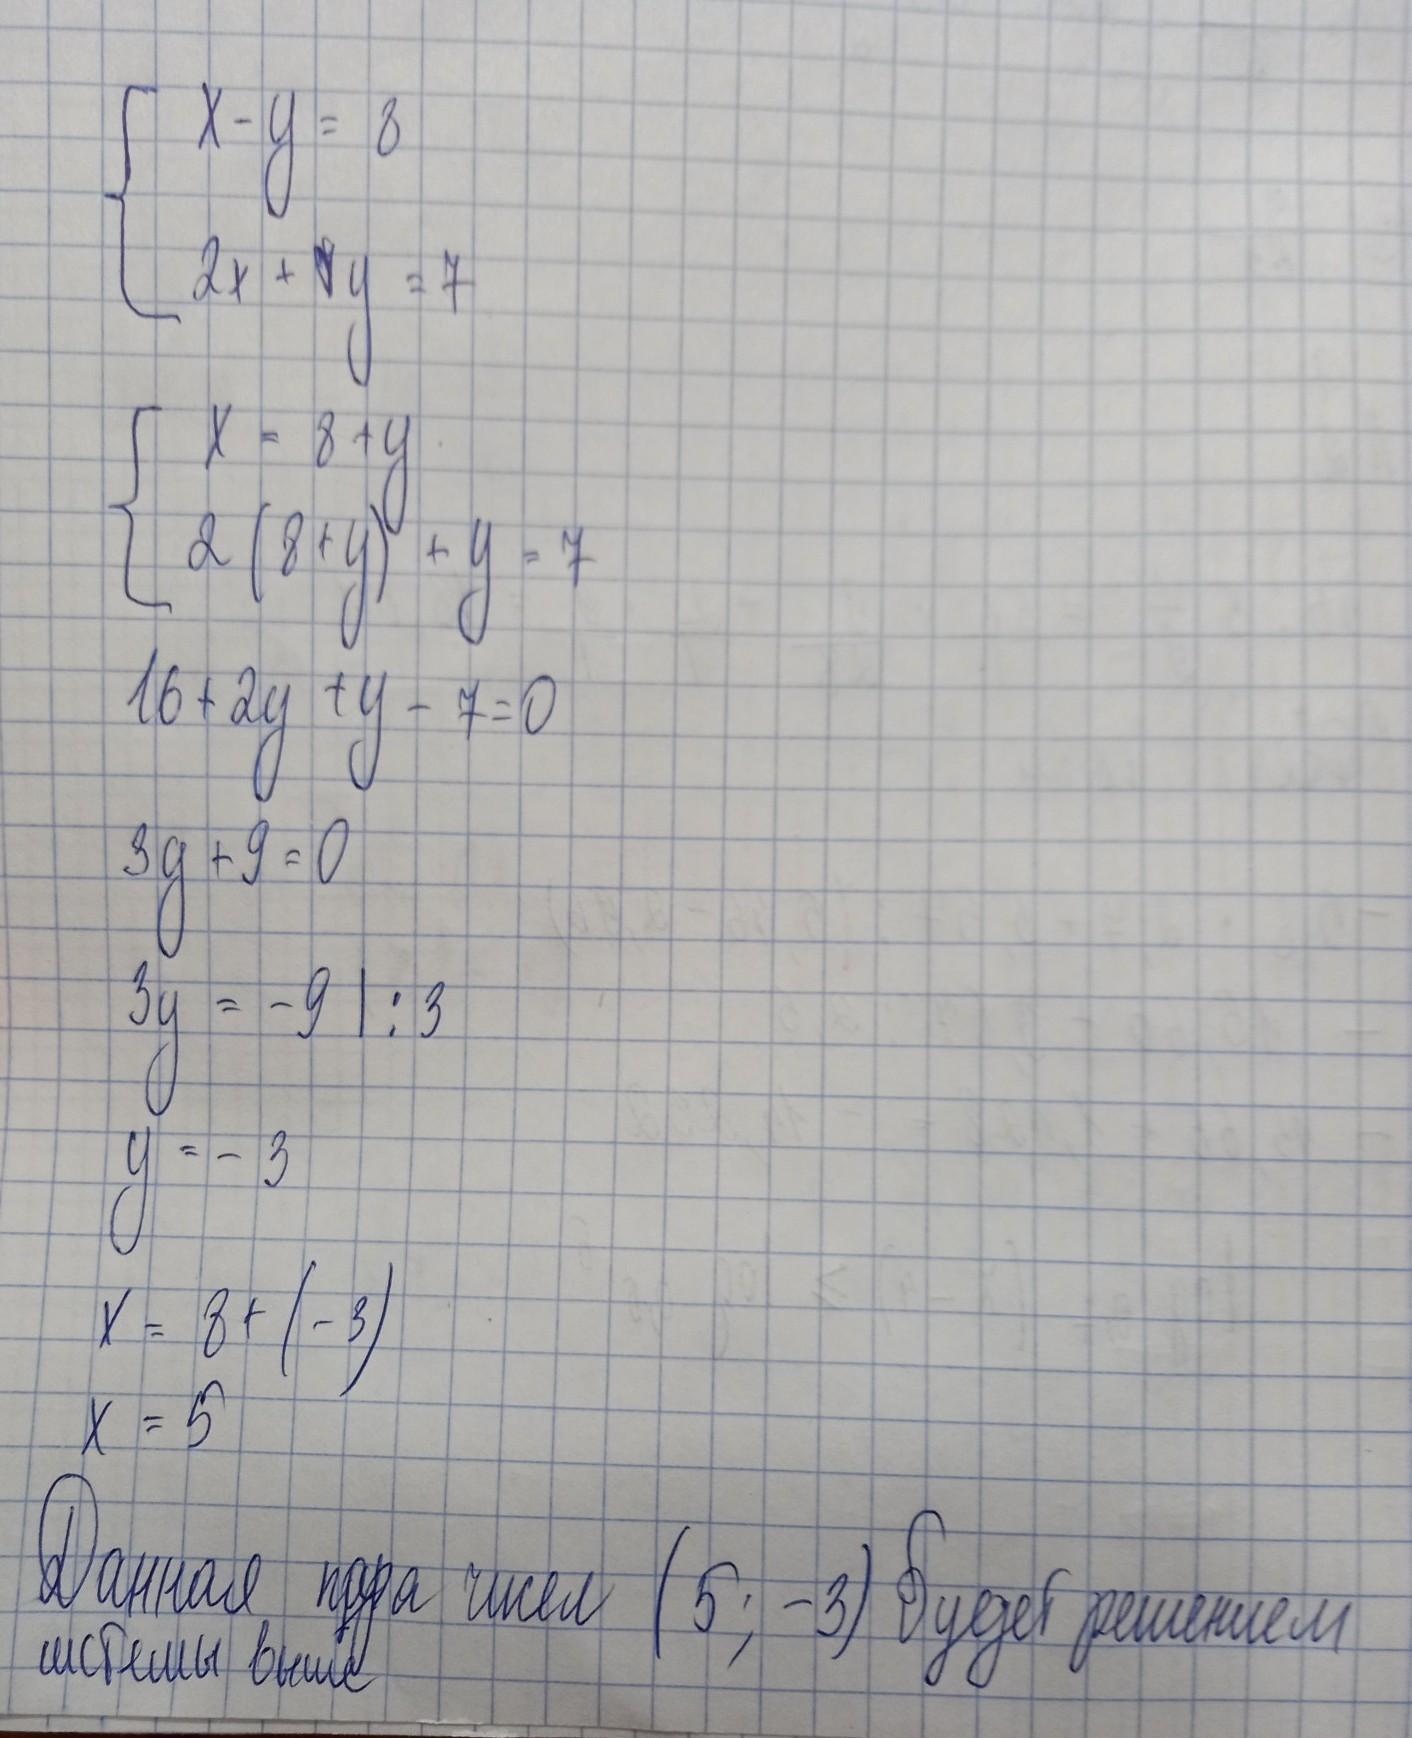 x - y = 8
2x + y = 7
x = 8 + y
2(8+y) + y = 7
16 + 2y + y - 7 = 0
3y + 9 = 0
3y = -9 | : 3
y = -3
x = 8 + (-3)
x = 5
Данная пара чисел (5; -3) будет решением
системы выше